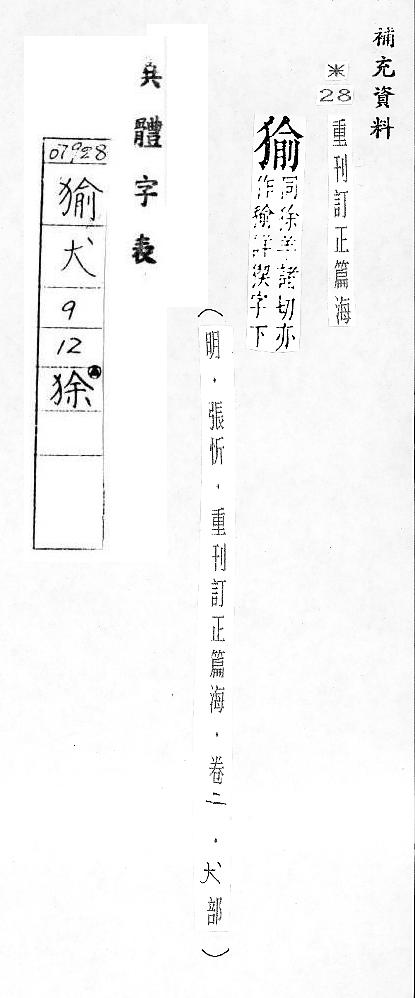 補充資料
※
28
重刊訂正篇海
㺄
同㺄羊諸切亦
作貐詳㺄字下
(明．張忻．重刊訂正篇海．卷二．犬部)
異體字表
07928
㺄
犬
9
12
狳